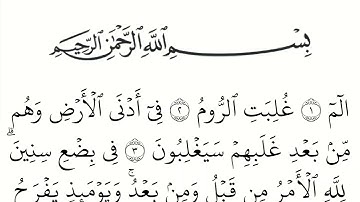 بِسْمِ ٱللَّهِ ٱلرَّحْمَٰنِ ٱلرَّحِيمِ
الٓمٓ ۝١ غُلِبَتِ ٱلرُّومُ ۝٢ فِىٓ أَدْنَى ٱلْأَرْضِ وَهُم
مِّنۢ بَعْدِ غَلَبِهِمْ سَيَغْلِبُونَ ۝٣ فِى بِضْعِ سِنِينَ ۗ
لِلَّهِ ٱلْأَمْرُ مِن قَبْلُ وَمِنۢ بَعْدُ ۚ وَيَوْمَئِذٍ يَفْرَحُ